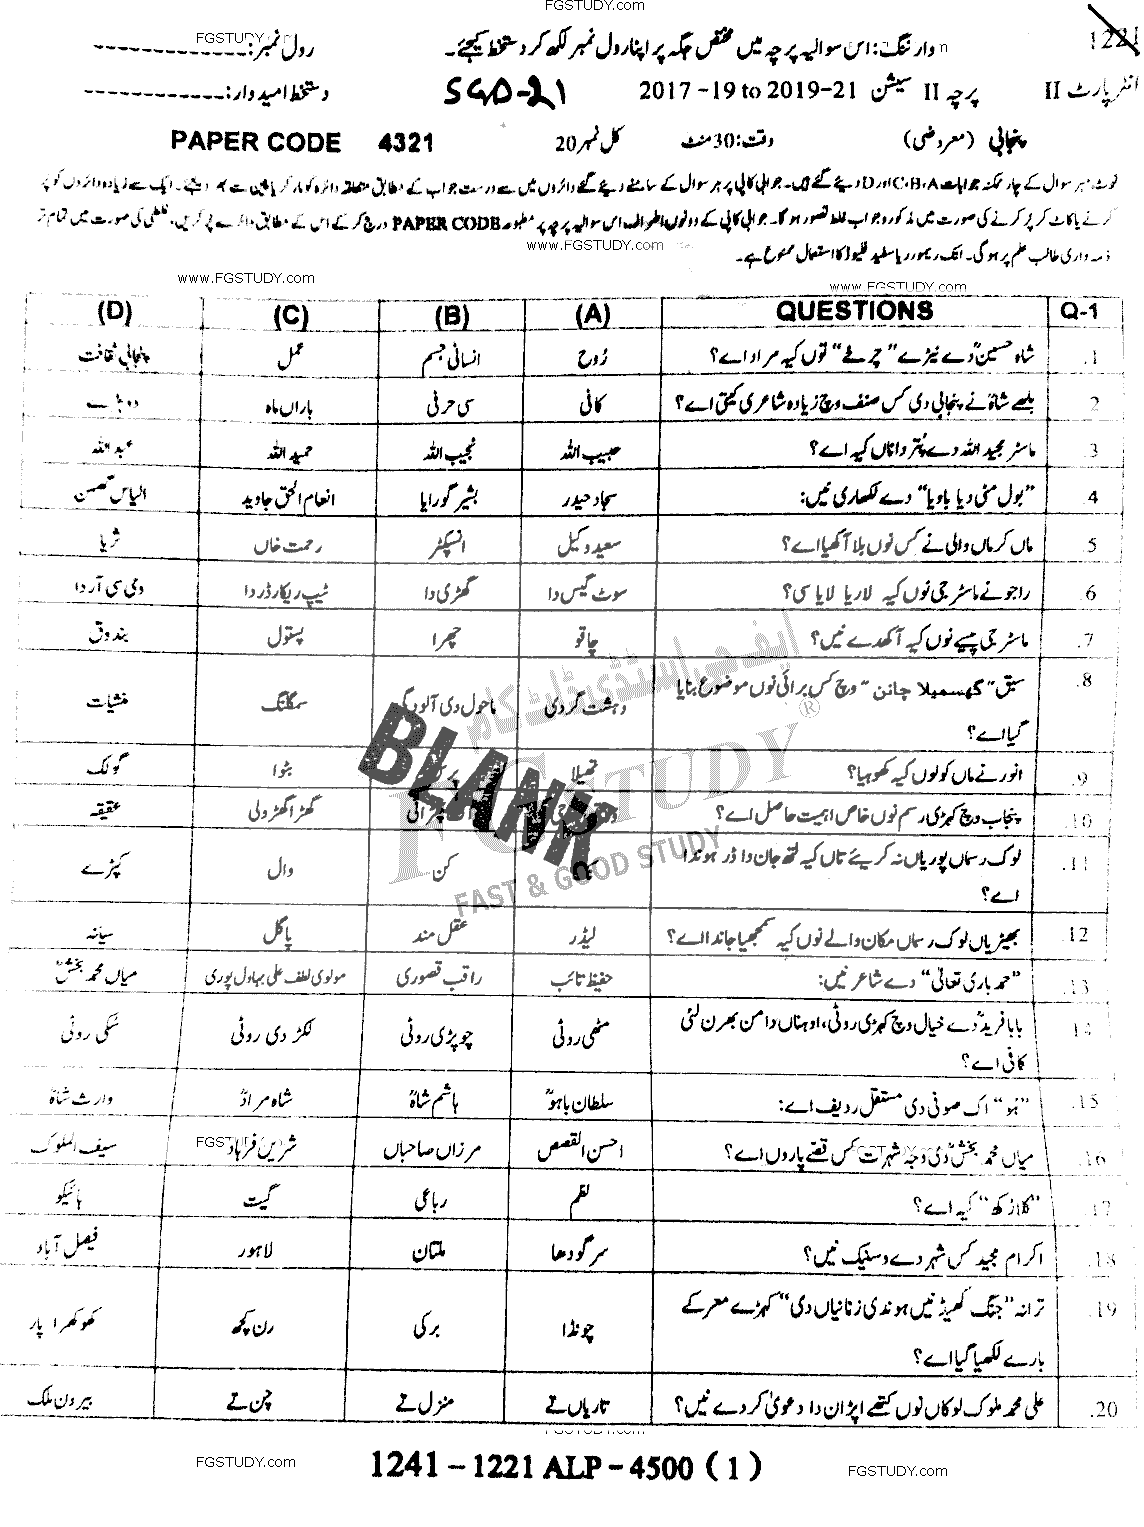 FGSTUDY.com
1221
وارننگ: اس سوالیہ پرچہ میں مختص جگہ پر اپنا رول نمبر لکھ کر دستخط کیجئے۔ رول نمبر: ------------
FGSTUDY.com
انٹر پارٹ II پرچہ II سیشن 2017-19 to 2019-21 SGD-21 دستخط امیدوار: ------------
پنجابی (معروضی) وقت: 30 منٹ کل نمبر 20 PAPER CODE 4321
نوٹ: ہر سوال کے چار ممکنہ جوابات C، B، A اور D دیئے گئے ہیں۔ جوابی کاپی پر ہر سوال کے سامنے دیئے گئے دائروں میں سے درست جواب کے مطابق متعلقہ دائرہ کو مارکر یا پین سے بھر دیجئے۔ ایک سے زیادہ دائروں کو پر
کرنے یا کاٹ کر پر کرنے کی صورت میں مذکورہ جواب غلط تصور ہوگا۔ جوابی کاپی کے دونوں اطراف اس سوالیہ پرچہ پر مطبوعہ PAPER CODE درج کر کے اس کے مطابق دائرے پر کریں، غلطی کی صورت میں تمام تر
ذمہ داری طالب علم پر ہوگی۔ انک ریموور یا سفید فلیوڈ کا استعمال ممنوع ہے۔
www.FGSTUDY.com
www.FGSTUDY.com
www.FGSTUDY.com
Q-1 QUESTIONS (A) (B) (C) (D)
1. شاہ حسینؒ دے نیڑے "چرخے" توں کیہ مراد اے؟ رُوح انسانی جسم عمل پنجابی ثقافت
2 بلھے شاہؒ نے پنجابی دی کس صنف وچ زیادہ شاعری کیتی اے؟ کافی سی حرفی باراں ماہ دوہڑے
3. ماسٹر مجید اللہ دے پُتر دا ناں کیہ اے؟ حبیب اللہ نجیب اللہ حمید اللہ عبد اللہ
4. "بول مٹی دیا باویا" دے لکھاری نیں: سجاد حیدر بشیر گورایا انعام الحق جاوید الیاس گھمن
5. ماں کرماں والی نے کس نوں بلا آکھیا اے؟ سعید وکیل انسپکٹر رحمت خاں ثریا
6. راجو نے ماسٹر جی نوں کیہ لاریا لایا سی؟ سوٹ کیس دا گھڑی دا ٹیپ ریکارڈر دا وی سی آر دا
7. ماسٹر جی پیسے نوں کیہ آکھدے نیں؟ چاقو چھرا پستول بندوق
8. سبق "گھسمیلا چانن" وچ کس برائی نوں موضوع بنایا
گیا اے؟ دہشت گردی ماحول دی آلودگی سمگلنگ منشیات
9. انور نے ماں کولوں کیہ کھوہیا؟ تھیلا بٹوا گولک
10. پنجاب وچ کہڑی رسم نوں خاص اہمیت حاصل اے؟ گھڑا گھڑولی عقیقہ
11. لوک رسماں پوریاں نہ کریئے تاں کیہ لتھ جان دا ڈر ہوندا
اے؟ کن وال کپڑے
12. بھیڑیاں لوک رسماں مکان والے نوں کیہ سمجھیا جاندا اے؟ لیڈر عقل مند پاگل سیانہ
13. "حمد باری تعالیٰ" دے شاعر نیں: حفیظ تائب راقب قصوری مولوی لطف علی بہاول پوری میاں محمد بخشؒ
14 بابا فریدؒ دے خیال وچ کہڑی روٹی، اوہناں دا من بھرن لئی
کافی اے؟ مٹھی روٹی چوپڑی روٹی لکڑ دی روٹی سُکی روٹی
15. "ہُو" اک صوفی دی مستقل ردیف اے: سلطان باہوؒ ہاشم شاہؒ شاہ مرادؒ وارث شاہؒ
16. میاں محمد بخشؒ دی وجہ شہرت کس قصے پاروں اے؟ احسن القصص مرزاں صاحباں شریں فرہاد سیف الملوک
FGSTUDY.com
17. "کلا رُکھ" کیہ اے؟ نظم رباعی گیت ہائیکو
18. اکرام مجید کس شہر دے وسنیک نیں؟ سرگودھا ملتان لاہور فیصل آباد
19. ترانہ "جنگ کھیڈ نیں ہوندی زنانیاں دی" کہڑے معرکے
بارے لکھیا گیا اے؟ چونڈا برکی رن کچھ کھوکھرا پار
20. علی محمد ملوک لوکاں نوں کتھے اپڑان دا دعویٰ کردے نیں؟ تاریاں تے منزل تے چن تے بیرون ملک
ایف جی اسٹڈی ڈاٹ کام
FG STUDY ®
FAST & GOOD STUDY
BLANK
1241 – 1221 ALP – 4500 ( 1 )
FGSTUDY.com
FGSTUDY.com